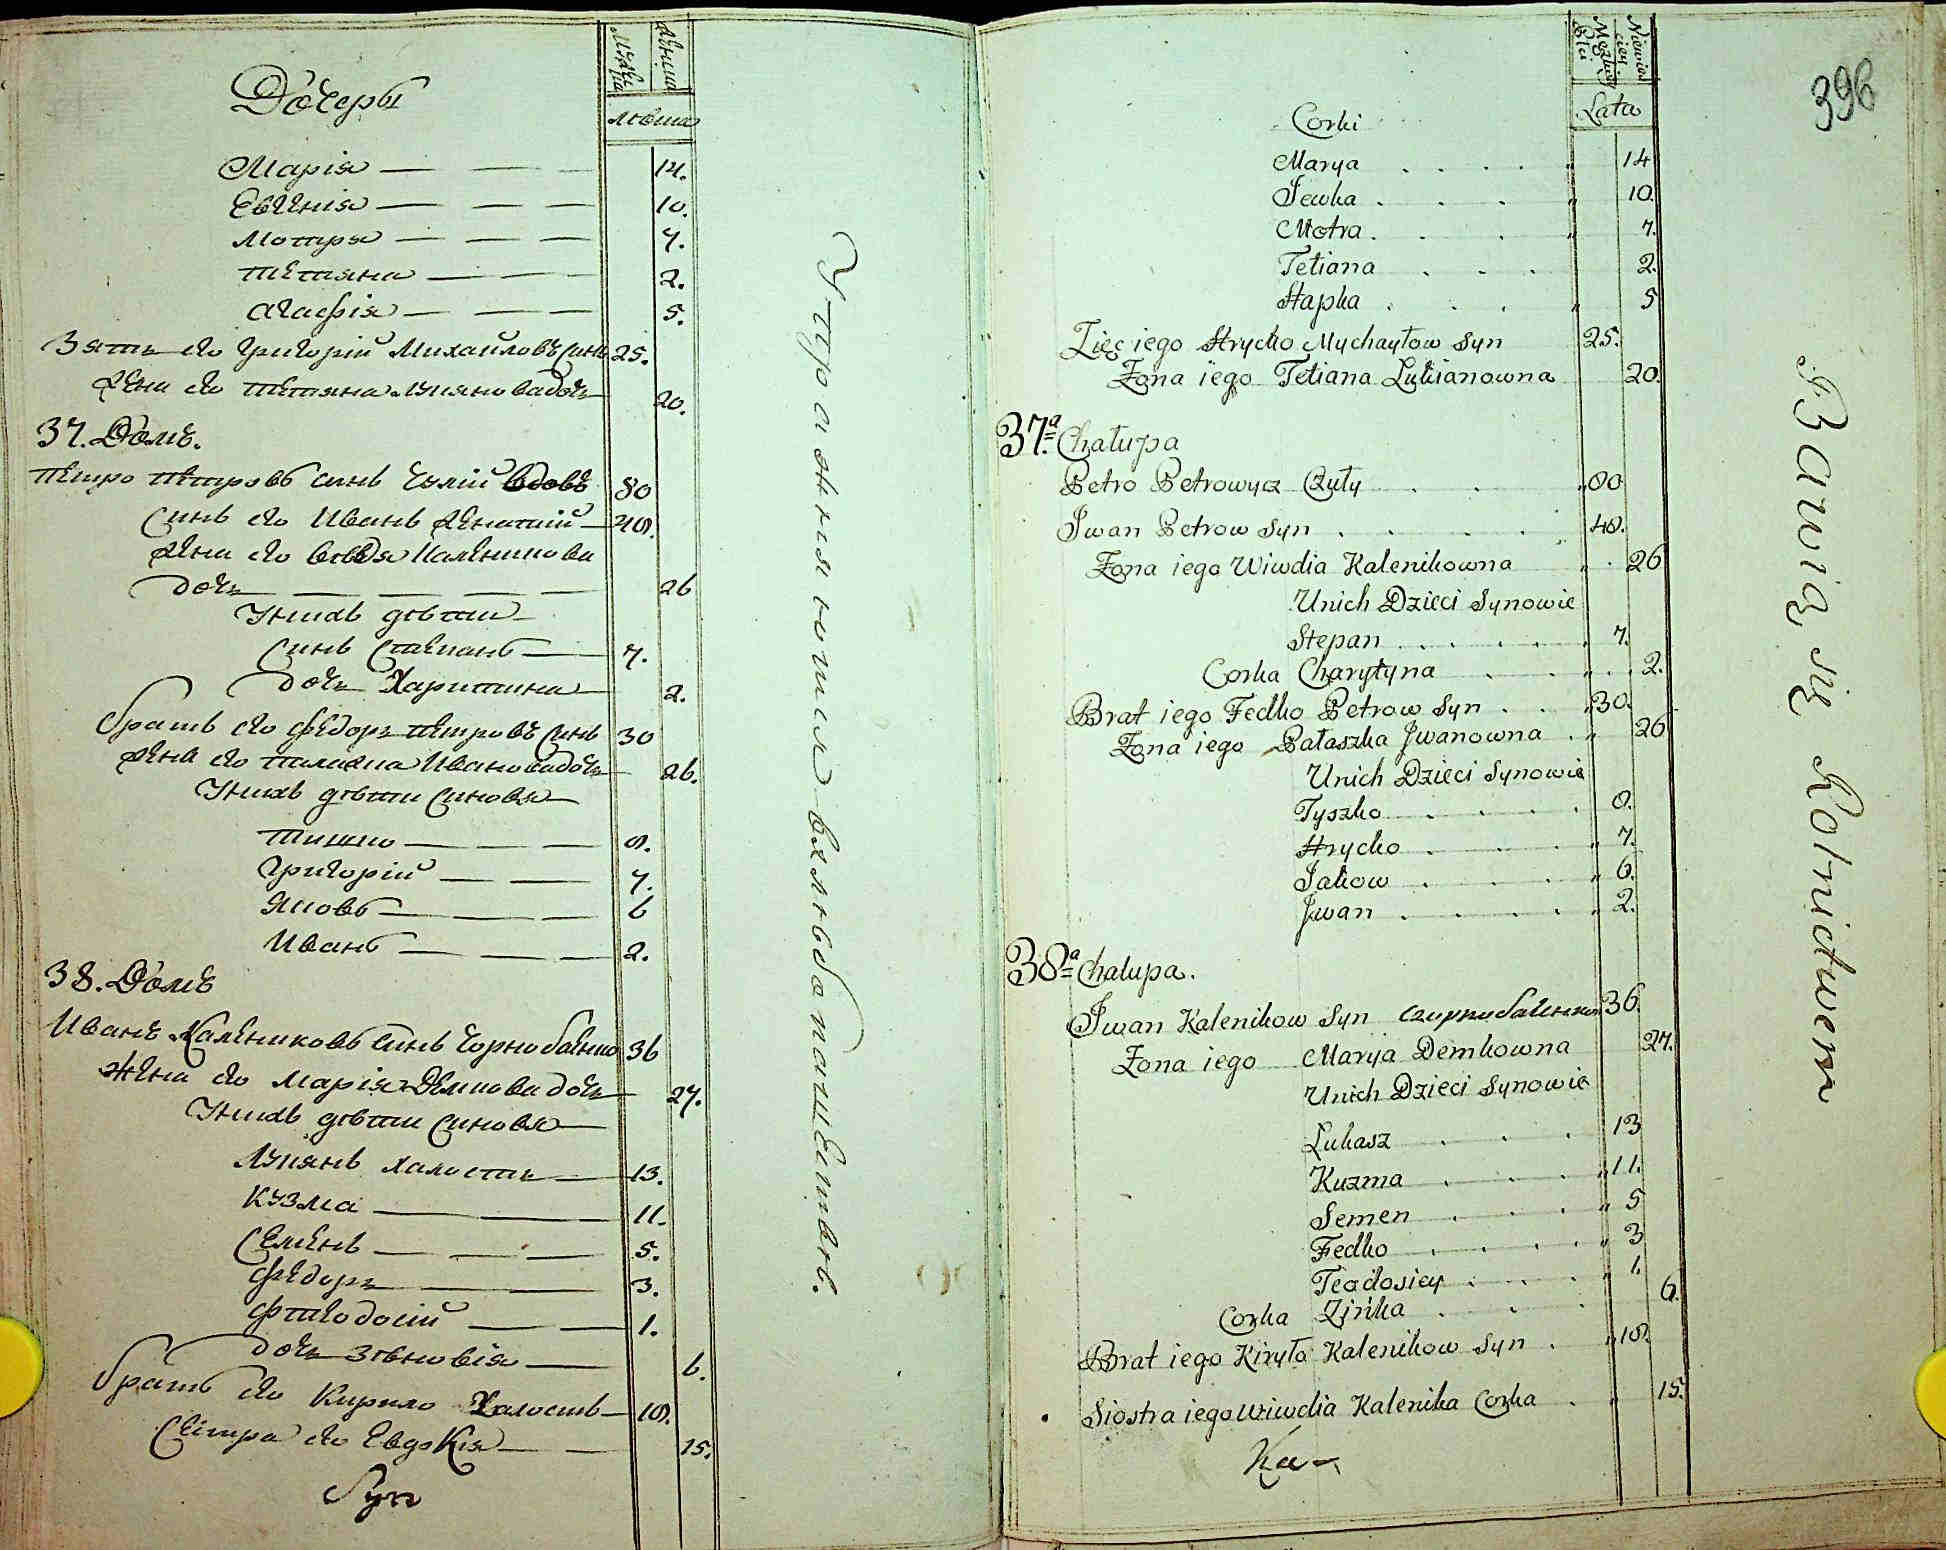 Дочеры
Мужеска
Женска
лѣта
Марія 14.
Евгенія 10.
Мотря 7.
тетяна 2.
агафія 5.
Зять его Григорій Михайловъ синъ 25.
жена его тетяна лукянова дочь 20.
37. Домъ.
петро петровъ синъ чолій вдовъ 80
Синъ его Иванъ женатій 48.
жена его вовдя Каленикова
дочь 26
Унихъ дѣти
Синъ Степанъ 7.
дочь Харитина 2.
братъ его федоръ петровъ синъ 30
жена его палажка Иванова дочь 26.
Унихъ дѣти Синовя
тишко 8.
Григорій 7.
Яковъ 6
Иванъ 2.
38. Домъ
Иванъ Калениковъ синъ Чорнобаенко 36
Жена его Марія Демкова дочь 27.
Унихъ дѣти Синовя
Лукянъ халостъ 13.
Кузма 11.
Семенъ 5.
федоръ 3.
фтеодосій 1.
дочь зѣновія 6.
братъ его Кирило Халостъ 18.
Сестра его Евдокія 15.
Syn
Упражняются вхлѣбопашествѣ.
396
Lata
Corki
Marya 14
Jewka 10.
Motra 7.
Tetiana 2.
Hapka 5
Zięć iego Hrycko Mychayłow Syn 25.
Zona iego Tetiana Lukianowna 20.
37.a Chałupa
Petro Petrowycz Czuły 80
Jwan Petrow Syn 48.
Zona iego Wiwdia Kalenikowna 26
Unich Dzieci Synowie
Stepan 7.
Corka Charytyna 2.
Brat iego Fedko Petrow Syn 30.
Zona iego Pałaszka Jwanowna 26
Unich Dzieci Synowie
Tyszko 8.
Hrycko 7.
Jakow 6.
Jwan 2.
38a Chalupa.
Jwan Kalenikow Syn Czornobaienko 36.
Zona iego Marya Demkowna 27.
Unich Dzieci Synowie
Lukasz 13
Kuzma 11.
Semen 5
Fedko 3
Teodosiey 1.
Corka Zińka 6.
Brat iego Kiryło Kalenikow Syn 18.
Siostra iego Wiwdia Kalenika Corka 15.
Ka-
Bawią się Rolnictwem